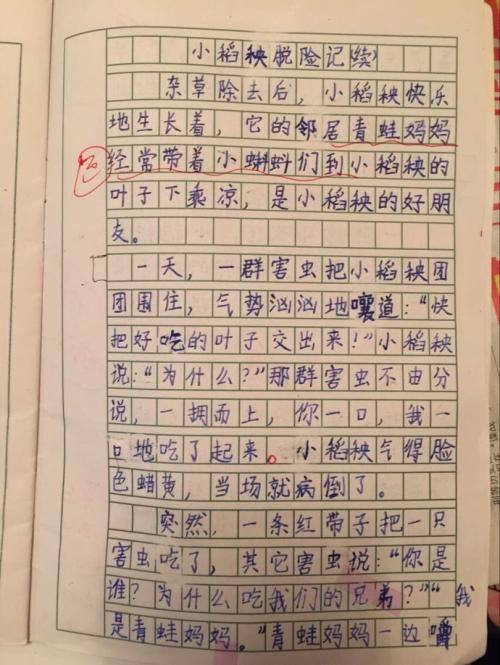 小稻秧脱险记(续)
杂草除去后，小稻秧快乐
地生长着，它的邻居青蛙妈妈
经常带着小蝌蚪们到小稻秧的
叶子下乘凉，是小稻秧的好朋
友。
一天，一群害虫把小稻秧团
团围住，气势汹汹地嚷道：“快
把好吃的叶子交出来！”小稻秧
说：“为什么？”那群害虫不由分
说，一拥而上，你一口，我一
口地吃了起来。小稻秧气得脸
色蜡黄，当场就病倒了。
突然，一条红带子把一只
害虫吃了，其它害虫说：“你是
谁？为什么吃我们的兄弟？”“我
是青蛙妈妈。”青蛙妈妈一边嚼